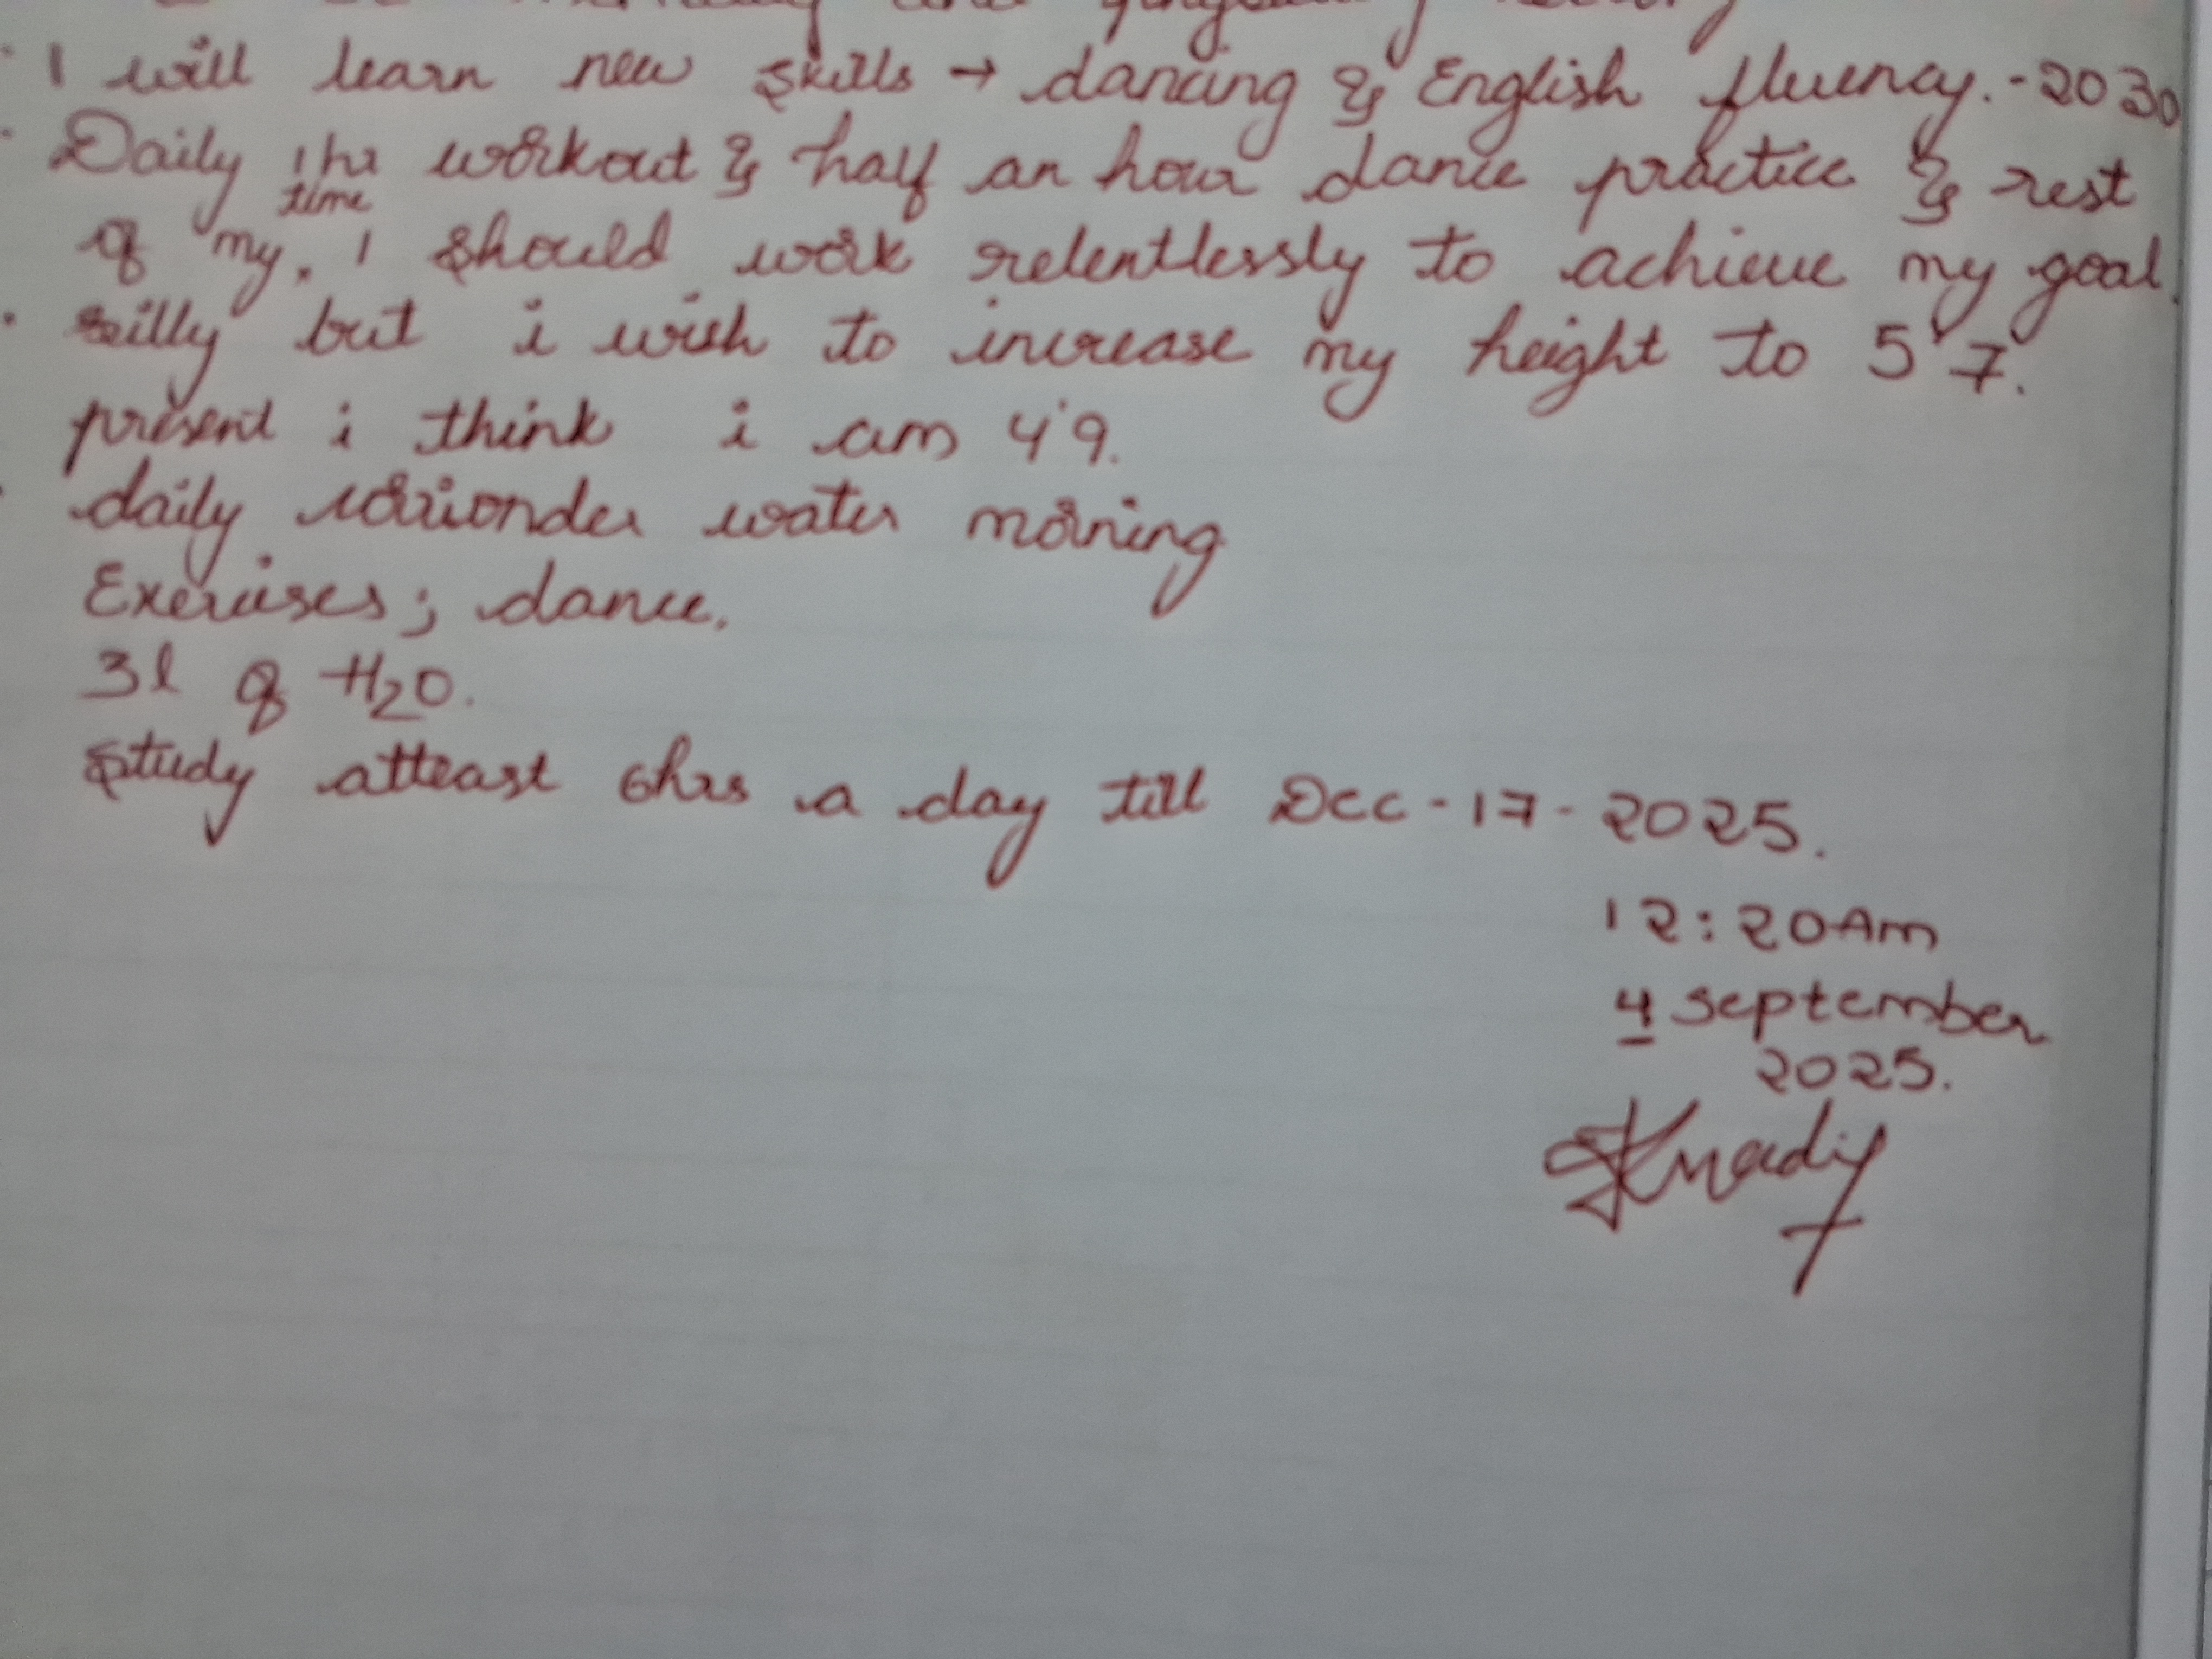 · I will learn new skills → dancing & English fluency. - 2030
· Daily 1 hr workout & half an hour dance practice & rest
time
of my. I should work relentlessly to achieve my goal.
· silly but i wish to increase my height to 5'7.
present i think i am 4'9.
· daily water morning
Exercises; dance.
3l of H2O.
Study atleast 6hrs a day till Dec - 17 - 2025.
12:20Am
4 September
2025.